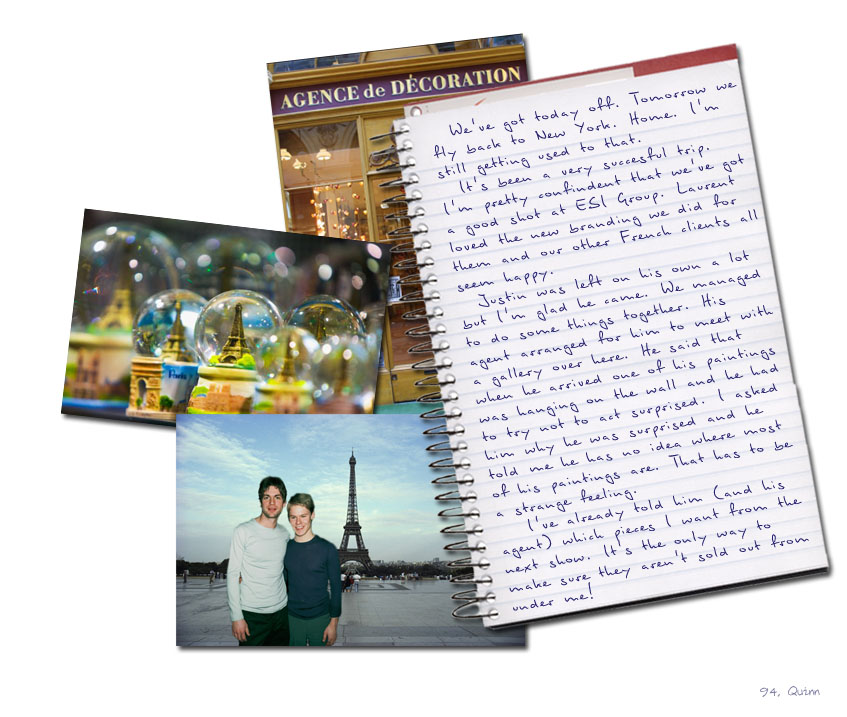 AGENCE de DÉCORATION
We've got today off. Tomorrow we
fly back to New York. Home. I'm
still getting used to that.
It's been a very succesful trip.
I'm pretty confindent that we've got
a good shot at ESL Group. Laurent
loved the new branding we did for
them and our other French clients all
seem happy.
Justin was left on his own a lot
but I'm glad he came. We managed
to do some things together. His
agent arranged for him to meet with
a gallery over here. He said that
when he arrived one of his paintings
was hanging on the wall and he had
to try not to act surprised. I asked
him why he was surprised and he
told me he has no idea where most
of his paintings are. That has to be
a strange feeling.
I've already told him (and his
agent) which pieces I want from the
next show. It's the only way to
make sure they aren't sold out from
under me!
Paris
94, Quinn